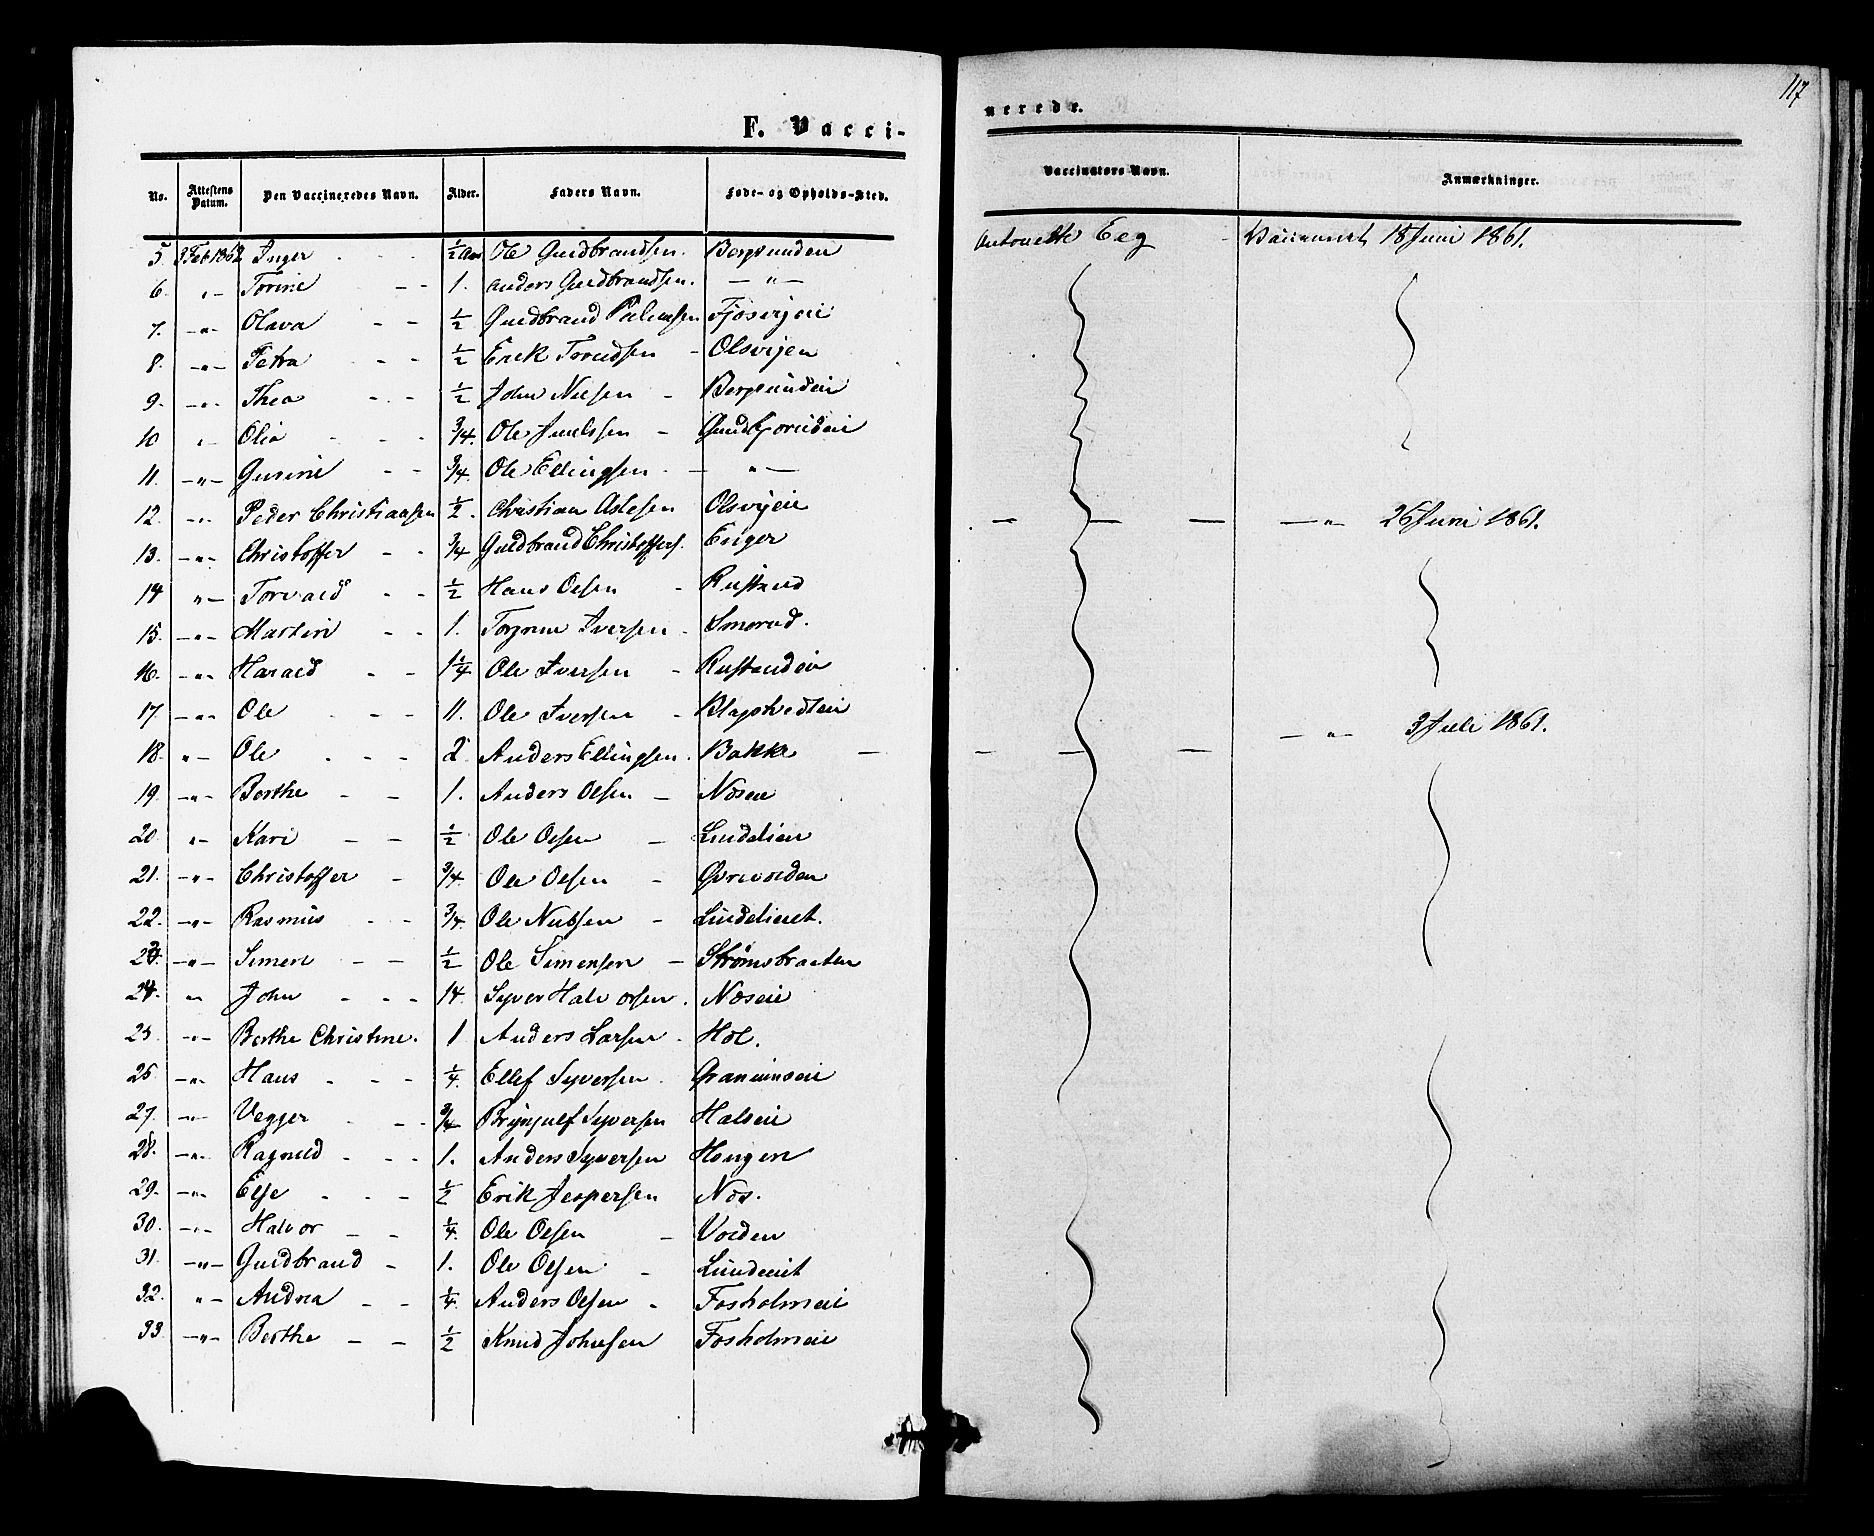 117
F. Vaccinerede.
No. Attestens Datum. Den Vaccineredes Navn. Alder. Faders Navn. Føde- og Opholds-Sted. Vaccinators Navn. Anmærkninger.
5 3 Feb 1862 Inger - - - ½ Aar Ole Guldbrandsen. Bergsunden Antonette Eeg - Vaccineret 18 Juni 1861.
6. " - Torine - - 1. Anders Guldbrandsen. - " -
7. - " - Olava - - ½ Guldbrand Fjøsvigeie
8. - " - Petra - - ½ Erik Trondsen - Olsvigen
9. - " - Thea - - - ½ John Nielsen - Bergsundeie
10 " - Olia - - - ¾. Ole -
11. - " - Gurine - - ¾. Ole Ellingsen. - " -
12. - " - Peder Christiansen ½. Christian Aslesen Olsvigeie - - - - " - 26 Juni 1861.
13. - " - Christoffer - - ¾ Guldbrand Christoffers. Enger
14 " - Torvald - - ½ Hans Olsen - Rustand
15. - " - Martin - - 1. Iversen - Smorud.
16. - " - Harald - - 1¼ Ole Iversen - Rustandeie
17. - " - Ole - - - 11. Ole Iversen -
- " - 3 Juli 1861.
18. " - Ole - - - 2 Anders Ellingsen. Bakke - - - -
19. - " - Berthe - - 1. Anders Olsen - Næseie
20. " - Kari - - ½ Ole Olsen - Lindelien
21. - " - Christoffer - ¾. Ole Olsen - Øvrevolden
22. - " - Rasmus - - ¾. Ole Nubsen - Lindelieiet.
23. - " - Simen - - ½ Ole Simensen - Strømsbraaten
24. " John - - - 14. Syver Halvorsen. Næseie
25 - " - Berthe Christine. 1 Anders Larsen - Hol.
26. - " - Hans - - - ¼. Ellef Syversen.
27. - " - Vegger - - - ¾ Bryngulf Syversen Halseie
28. - " - Ragnild - - - 1. Anders Syversen Haugen
29. - " - Else - - - ½ Erik Jespersen Næs.
30. - " - Halvor - - ¼. Ole Olsen - Volden
31. - " - Guldbrand - 1. Ole Olsen - Lundeiet
32. " - Andrea - - ¼. Anders Olsen - Fosholmeie
33. - " - Berthe - - ½ Knud Johnsen Fosholmeie